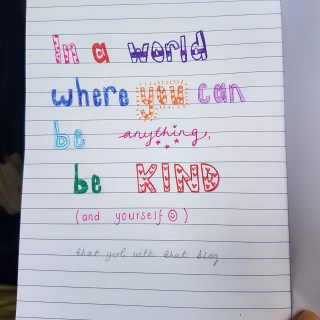 In a world
where you can
be anything,
be KIND
(and yourself ☺)
that girl with that blog